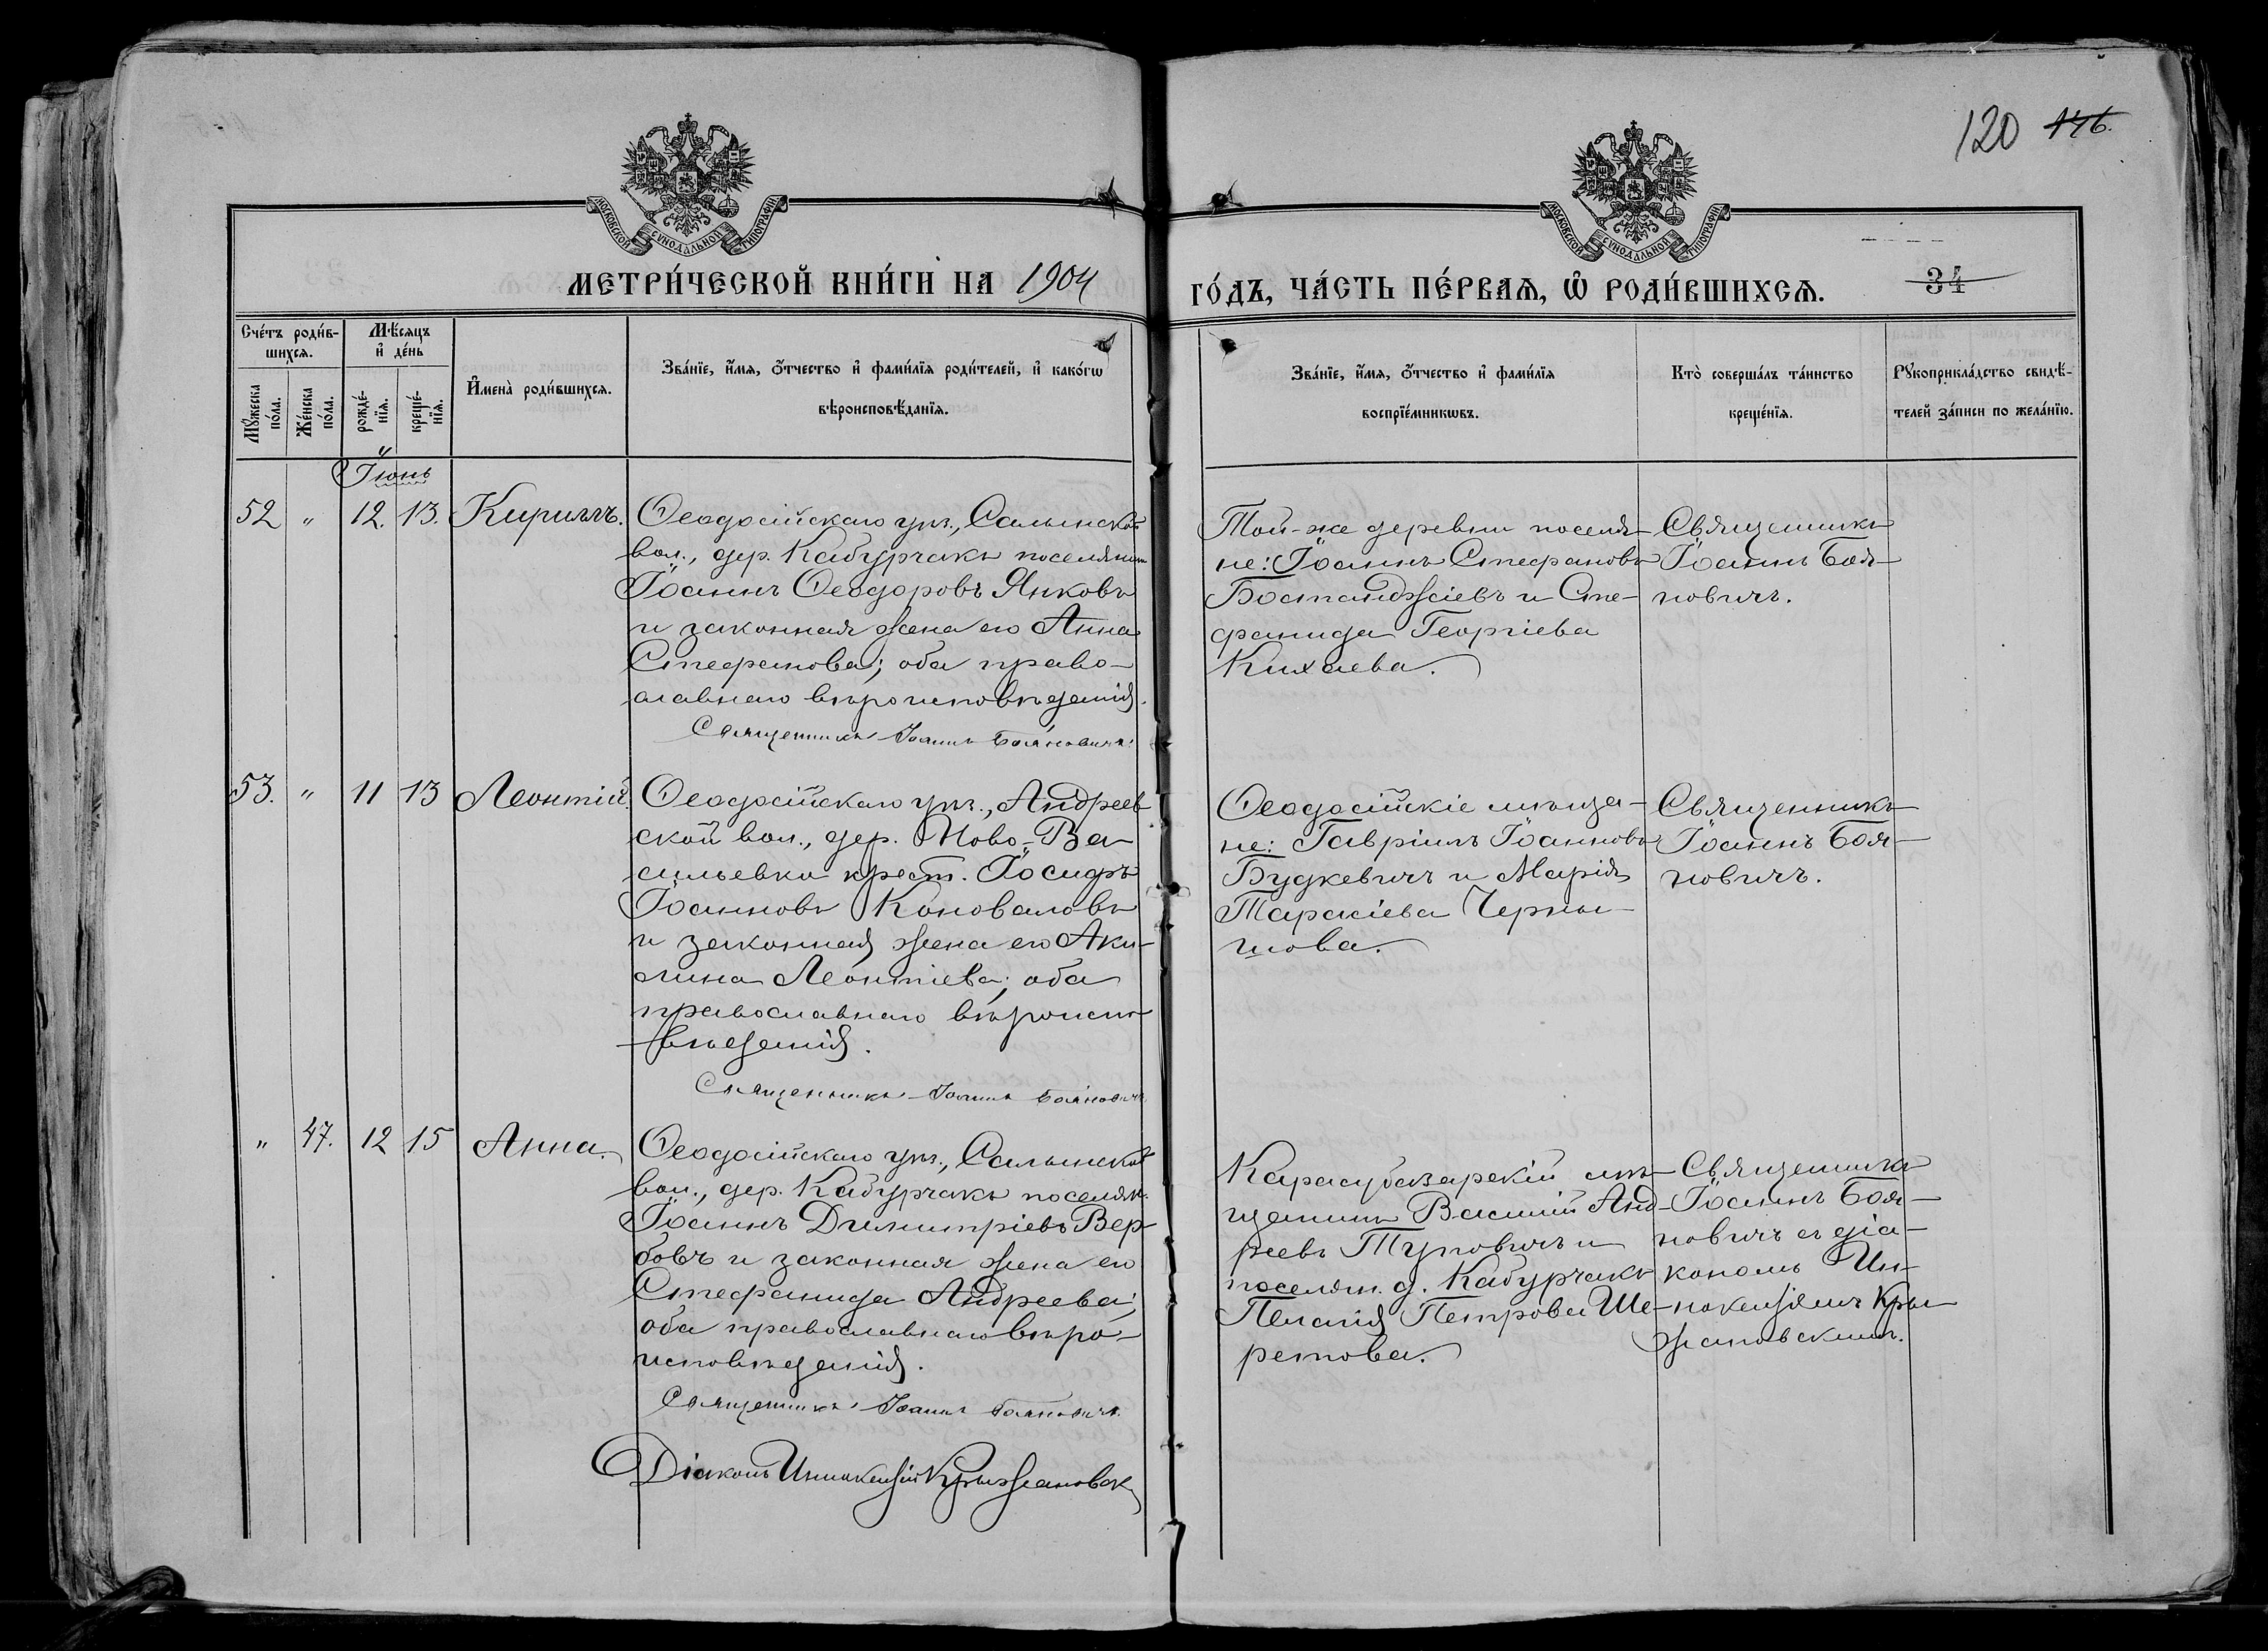 120 146.
МОСКОВСКОЙ СУНОДАЛЬНОЙ ТИПОГРАФІИ
МОСКОВСКОЙ СУНОДАЛЬНОЙ ТИПОГРАФІИ
МЕТРИ́ЧЕСКОЙ КНИ́ГИ НА 1904
ГО́ДЪ, ЧА́СТЬ ПЕ́РВАѦ, Ѽ РОДИ́ВШИХСѦ. 34
Счéтъ роди́в-
шихсѧ.
Мꙋ́жеска по́ла.
Же́нска по́ла.
Мѣ́сяцъ и҆ де́нь
рожде́-нїѧ.
креще́-нїѧ.
И҆мена̀ роди́вшихсѧ.
Зва́нїе, и҆́мѧ, ѻ҆́тчество и҆ фами́лїѧ роди́телей, и҆ како́гѡ
вѣроисповѣ́данїѧ.
Зва́нїе, и҆́мѧ, ѻ҆́тчество и҆ фами́лїѧ
воспрїе́мникѡвъ.
Кто̀ соверша́лъ та́инство
креще́нїѧ.
Рꙋкоприкла́дство свидѣ́-
телей за́писи по жела́нїю.
Іюнь
52 " 12. 13. Кириллъ.
Ѳеодосійскаго уѣз., Салынской
вол., дер. Кабурчакъ поселянин
Іоаннъ Ѳеодоровъ Янковъ
и законная жена его Анна
Стефанова; оба право-
славнаго вѣроисповѣданія.
Священникъ Іоаннъ Бояновичъ.
Той-же деревни поселя-
не: Іоаннъ Стефановъ
Бостанджіевъ и Сте-
фанида Георгіева
Кихаева.
Священникъ
Іоаннъ Боя-
новичъ.
53. " 11 13 Леонтій.
Ѳеодосійскаго уѣз., Андреев
ской вол., дер. Ново-Ва-
сильевки крест. Іосифъ
Іоанновъ Коноваловъ
и законная жена его Аки-
лина Леонтіева; оба
православнаго вѣроиспо-
вѣданія.
Священникъ Іоаннъ Бояновичъ
Ѳеодосійскіе мѣща-
не: Гавріилъ Іоанновъ
Будкевичъ и Марія
Тарасіева Черны-
шова.
Священникъ
Іоаннъ Боя-
новичъ.
" 47. 12 15 Анна.
Ѳеодосійскаго уѣз., Салынской
вол., дер. Кабурчакъ поселян.
Іоаннъ Димитріевъ Вер-
бовъ и законная жена его
Стефанида Андреева;
оба православнаго вѣро-
исповѣданія.
Священникъ Іоаннъ Бояновичъ.
Діаконъ Иннокентій Крыжановск
Карасубазарскій мѣ-
щанинъ Василій Анд-
реевъ Туповичъ и
поселян. д. Кабурчакъ
Пелагія Петрова Ше-
ретова.
Священникъ
Іоаннъ Боя-
новичъ съ діа-
кономъ Ин-
нокентіемъ Кры-
жановскимъ.